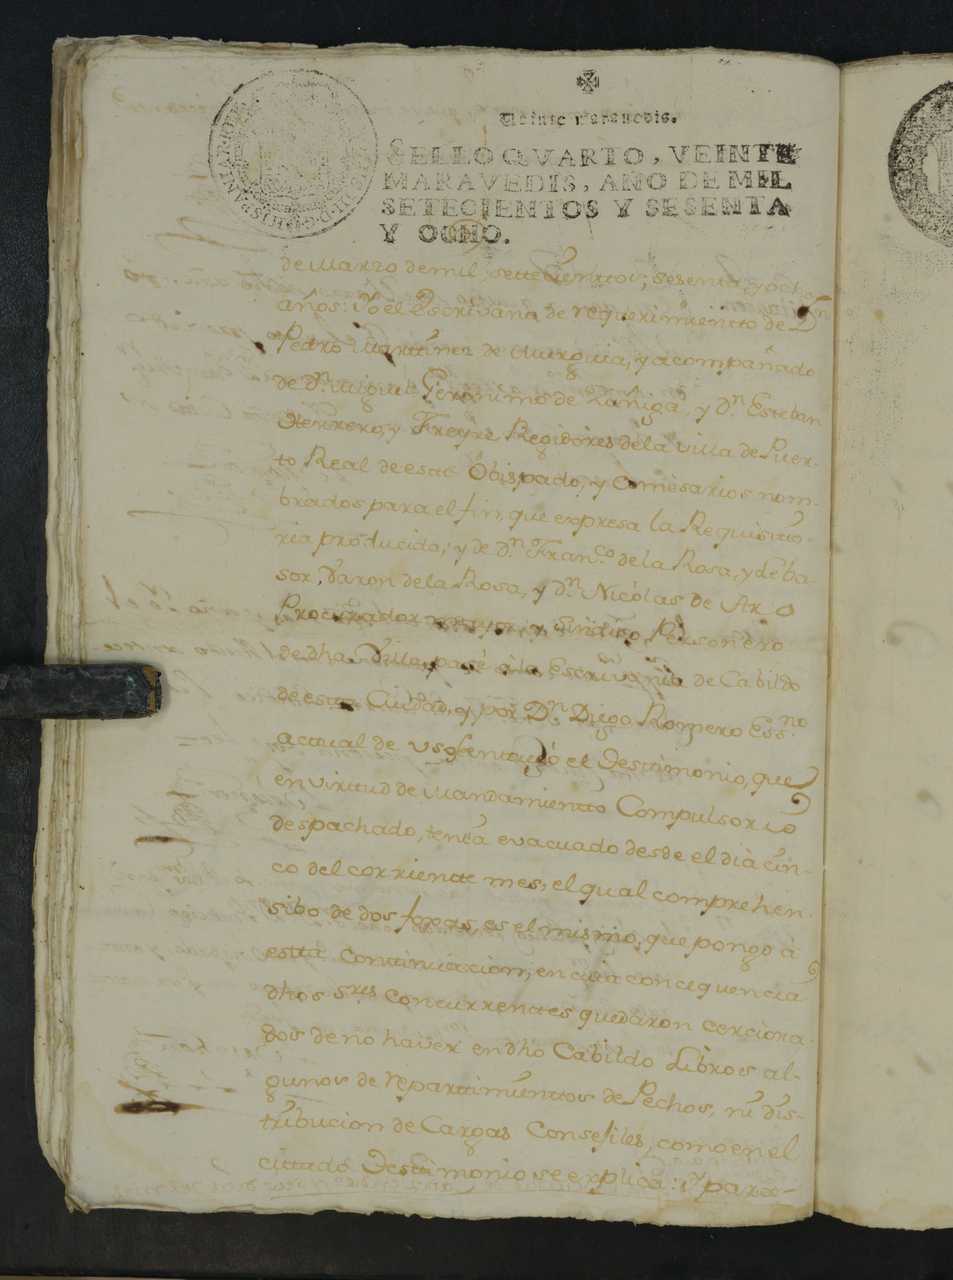 Veinte maravedis.
SELLO QVARTO, VEINTE
MARAVEDIS, AÑO DE MIL
SETECIENTOS Y SESENTA
Y OCHO.
de Marzo de mil, settecienttos, sesenta, y ocho
años: Yo el Escrivano de requerimientto de Dn
Pedro Marttínez de Murguia, y acompañado
de dn. Miguel Geronimo de Zuñiga, y dn Esteban
Herrero, y Freyre Regidores de la villa de Puer-
to Real de estte Obispado, y Comisarios nom-
brados para el fin, que expresa la Requisitto-
ria producida; y de dn Franco de la Rosa, y de ba-
sor, Varon de la Rosa, y dn Nicolas de Aro
Procurador mayor, y Sindico Personero
de dha Villa, pasé à la Escrivania de Cabildo
de estta Ciudad, y por Dn Diego Romero Essno
acttual de uso enttregó el Testtimonio, que
en virttud de Mandamientto Compulsorio
despachado, tenía evacuado desde el dia cin-
co del corriente mes, el qual comprehen-
sibo de dos foxas, es el mismo, que pongo à
estta Conttinuacion, en cuia consequencia
dhos Sres Concurrenttes quedaron cerciora-
dos de no haver en dho Cabildo Libros al-
gunos de reparttimienttos de Pechos, ni dis-
tribucion de Cargas Consejiles, como en el
cittado Testtimonio se explica: Y para